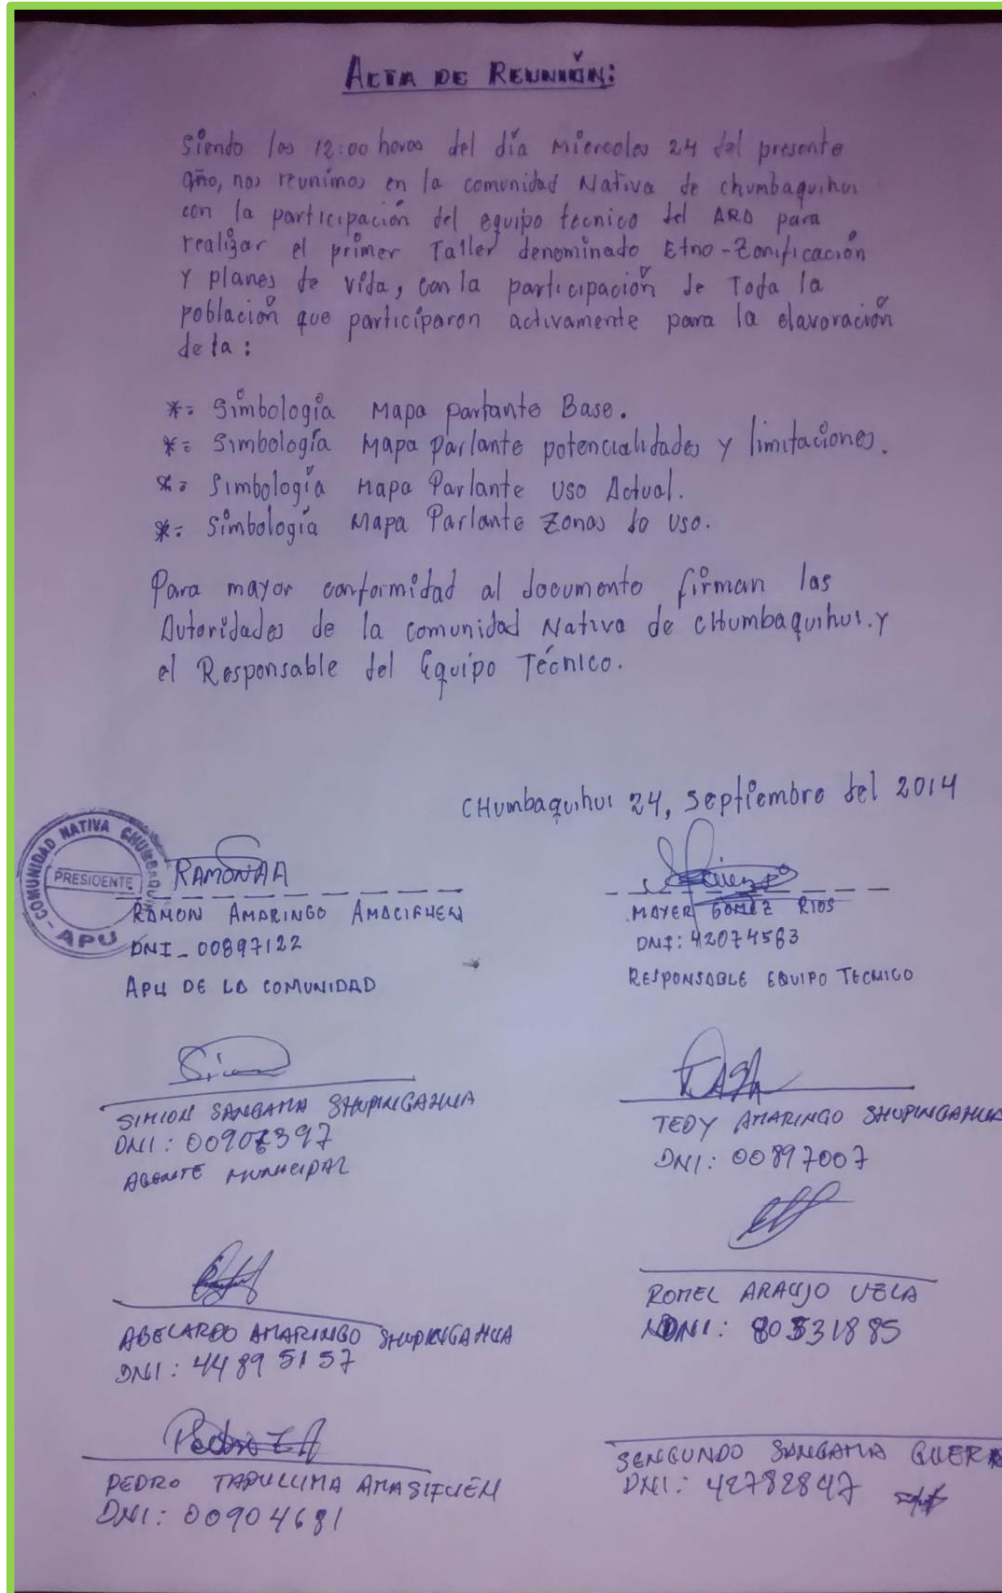 ACTA DE REUNIÓN:
Siendo las 12:00 horas del día Miercoles 24 del presente
año, nos reunimos en la comunidad Nativa de chumbaquihui
con la participación del equipo tecnico del ARD para
realizar el primer Taller denominado Etno-Zonificación
Y planes de vida, con la participación de Toda la
población que participaron activamente para la elavoración
de la :
*= Simbología Mapa parlante Base.
*= Simbología Mapa Parlante potencialidades y limitaciones.
*= Simbología Mapa Parlante Uso Actual.
*= Simbología Mapa Parlante Zonas de Uso.
Para mayor conformidad al documento firman las
Autoridades de la comunidad Nativa de CHumbaquihui. y
el Responsable del Equipo Técnico.
CHumbaquihui 24, Septiembre del 2014
COMUNIDAD NATIVA
PRESIDENTE
APU
RAMONAA
RAMON AMARINGO AMACIFUEN
DNI_00897122
APU DE LA COMUNIDAD
MAYER GOMEZ RIOS
DNI: 42074563
RESPONSABLE EQUIPO TECNICO
SIMION SANGAMA SHUPINGAHUA
DNI:
AGENTE MUNICIPAL
TEDY AMARINGO SHUPINGAHUA
DNI: 00897007
ABELARDO AMARINGO SHUPINGAHUA
DNI: 44895157
ROMEL ARAUJO VELA
DNI: 80531885
Pedro T A
PEDRO TAPULLIMA AMASIFUEN
DNI: 00904681
SENGUNDO SANGAMA
DNI: 42782847